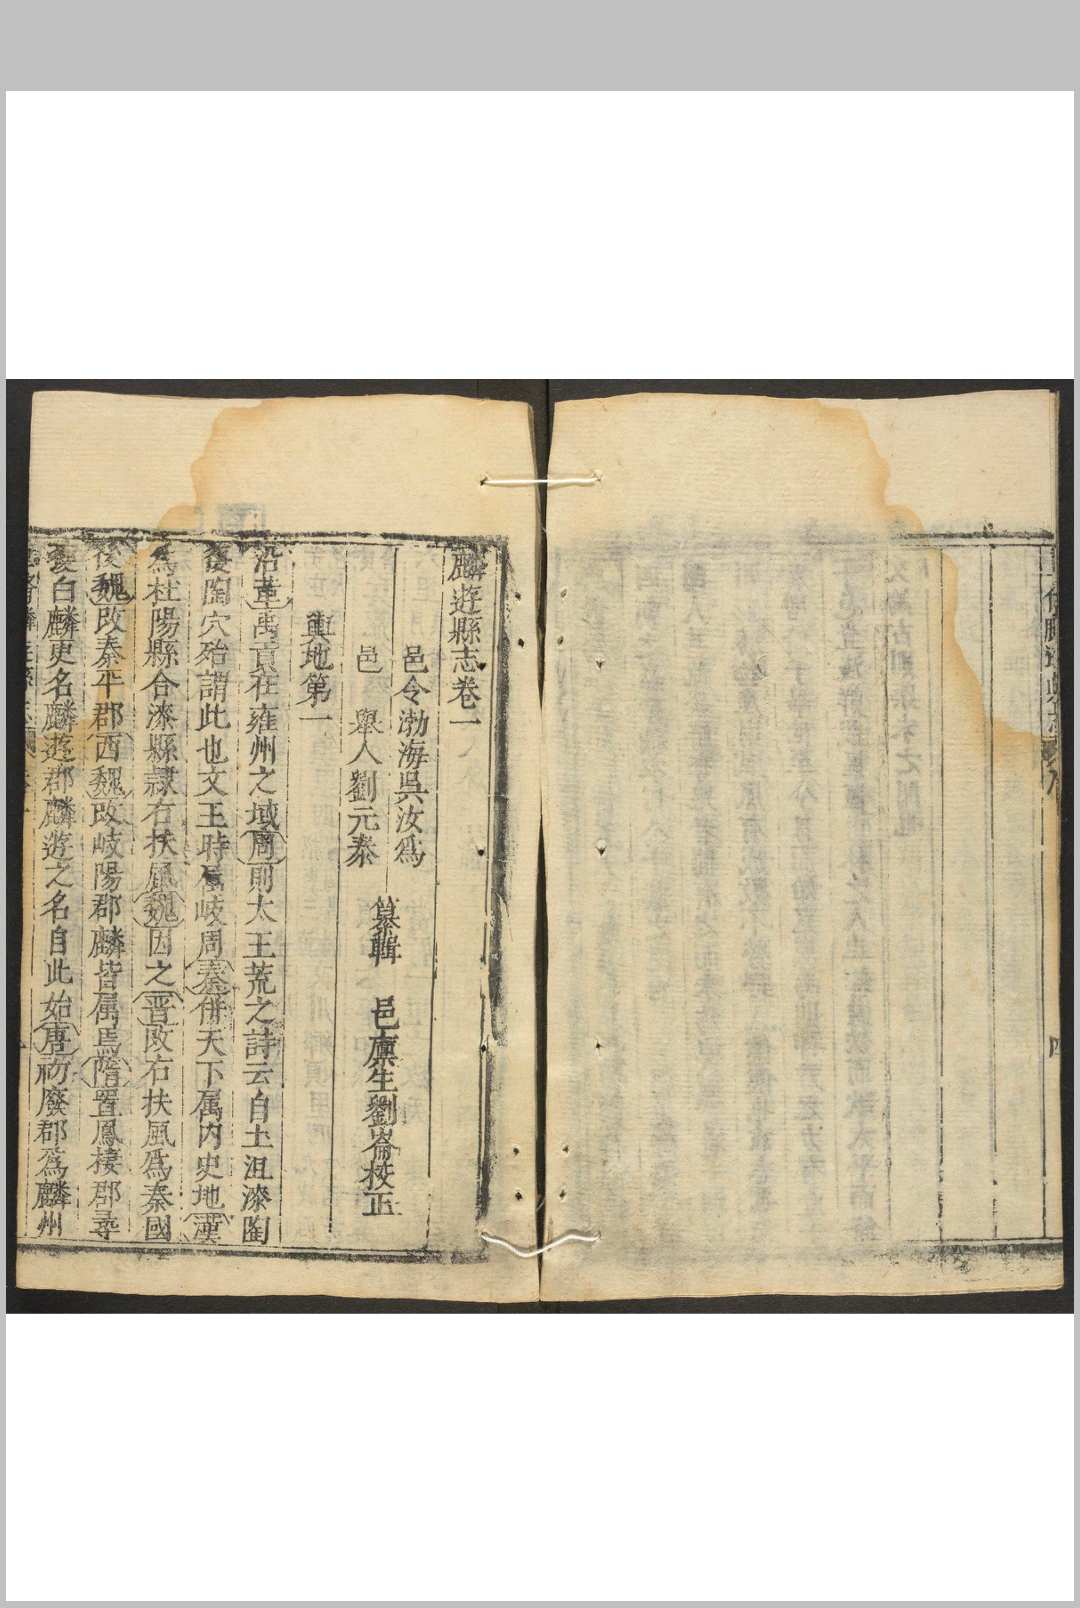 四
麟遊縣志卷一
邑令渤海吳汝爲
邑 舉人劉元泰
纂輯 邑廩生劉崙校正
輿地第一
沿革禹貢在雍州之域周則太王荒之詩云自土沮漆陶
復陶穴殆謂此也文王時属岐周秦併天下属内史地漢
爲杜陽縣合漆縣隷右扶風魏因之晋改右扶風爲秦國
後魏改秦平郡西魏改岐陽郡麟皆属焉隋置鳳棲郡尋
獲白麟更名麟遊郡麟遊之名自此始唐初廢郡爲麟州